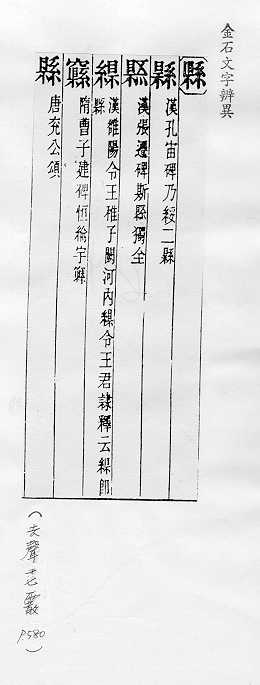 金石文字辨異
縣
縣 漢孔宙碑乃綏二縣
漢張遷碑斯縣獨全
漢雒陽令王稚子闕河内緜令王君隸釋云緜即縣
隋曹子建碑恒
縣 唐兖公頌
(去聲十七霰
P.580)